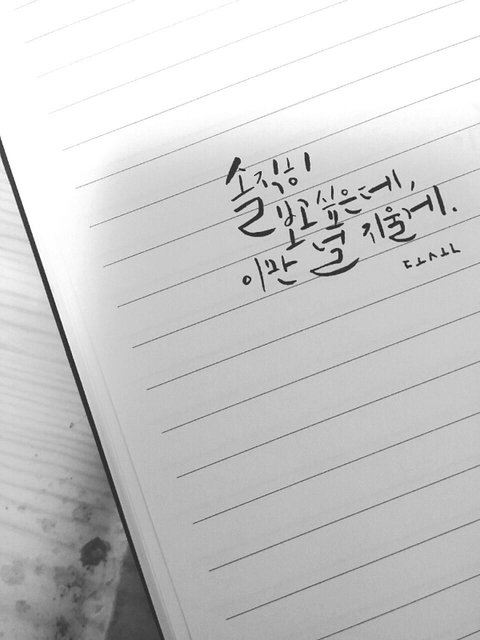 솔직히
보고싶은데,
이만 널 지울게.